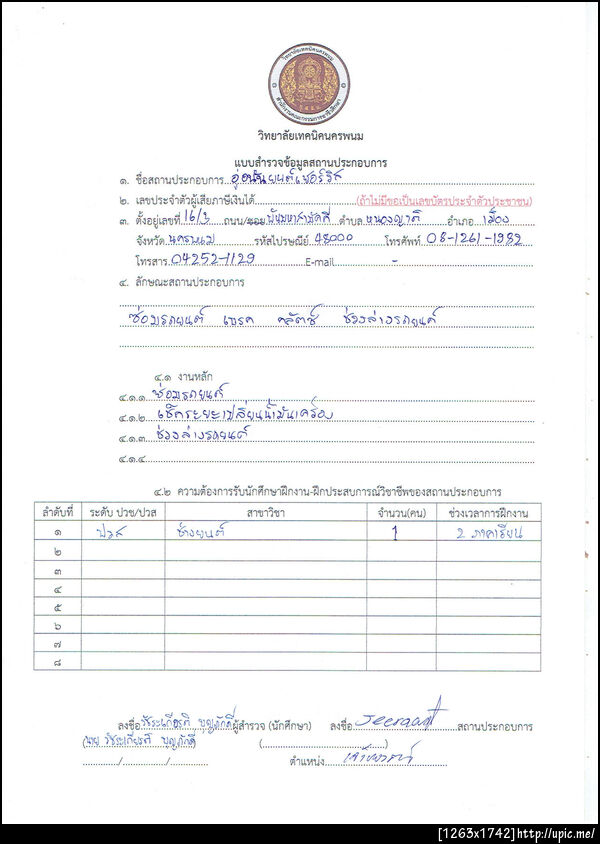 วิทยาลัยเทคนิคนครพนม
แบบสำรวจข้อมูลสถานประกอบการ
๑. ชื่อสถานประกอบการ
๒. เลขประจำตัวผู้เสียภาษีเงินได้ (ถ้าไม่มีขอเป็นเลขบัตรประจำตัวประชาชน)
๓. ตั้งอยู่เลขที่ 16/3 ถนน/ซอย ตำบล หนองญาติ อำเภอ เมือง
จังหวัด นครพนม รหัสไปรษณีย์ 48000 โทรศัพท์ 08-1261-1982
โทรสาร 04252-1129 E-mail -
๔. ลักษณะสถานประกอบการ
ซ่อมรถยนต์ เบรค คลัตช์ ช่วงล่างรถยนต์
๔.๑ งานหลัก
๔.๑.๑ ซ่อมรถยนต์
๔.๑.๒ เช็คระยะเปลี่ยนน้ำมันเครื่อง
๔.๑.๓ ช่วงล่างรถยนต์
๔.๑.๔
๔.๒ ความต้องการรับนักศึกษาฝึกงาน-ฝึกประสบการณ์วิชาชีพของสถานประกอบการ
ลำดับที่ ระดับ ปวช/ปวส สาขาวิชา จำนวน(คน) ช่วงเวลาการฝึกงาน
๑ ปวส ช่างยนต์ 1 2 ภาคเรียน
๒
๓
๔
๕
๖
๗
๘
ลงชื่อ วัชระเกียรติ บุญภักดี ผู้สำรวจ (นักศึกษา) ลงชื่อ สถานประกอบการ
(นาย วัชระเกียรติ บุญภักดี) ( )
/ / ตำแหน่ง
[1263x1742]http://upic.me/